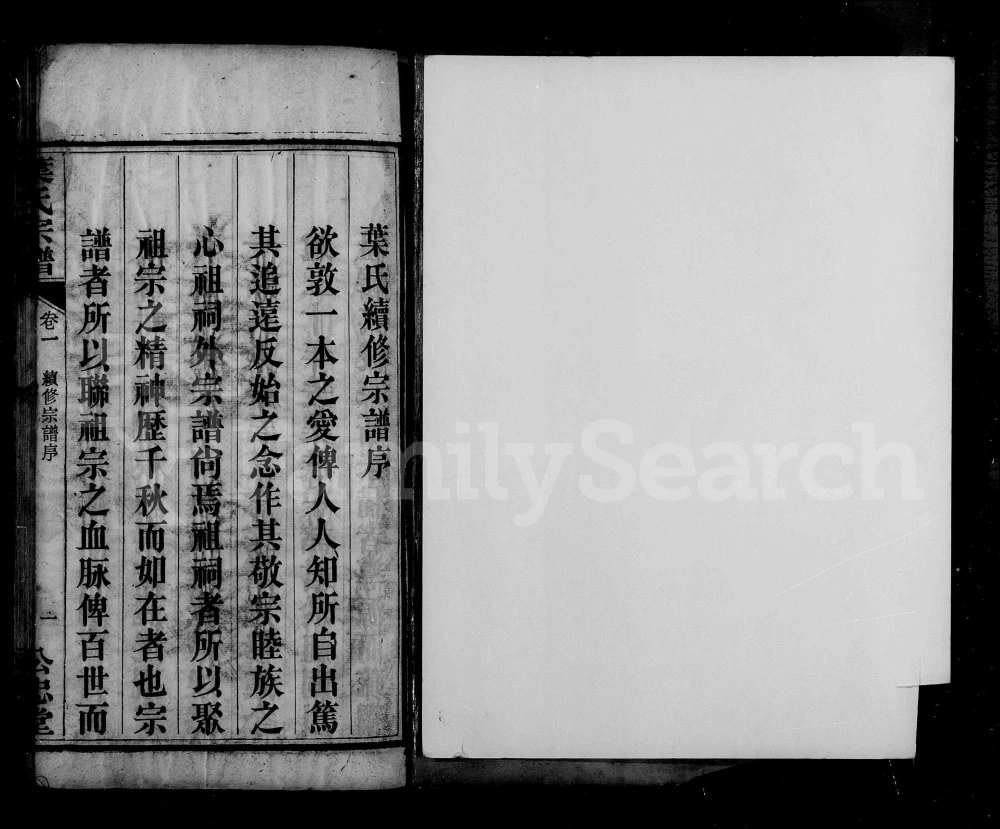 葉氏續修宗譜序
欲敦一本之愛俾人人知所自出篤
其追遠反始之念作其敬宗睦族之
心祖祠外宗譜尙焉祖祠者所以聚
祖宗之精神歷千秋而如在者也宗
譜者所以聯祖宗之血脉俾百世而
葉氏宗譜
卷一
續修宗譜序
二
公忠堂
FamilySearch